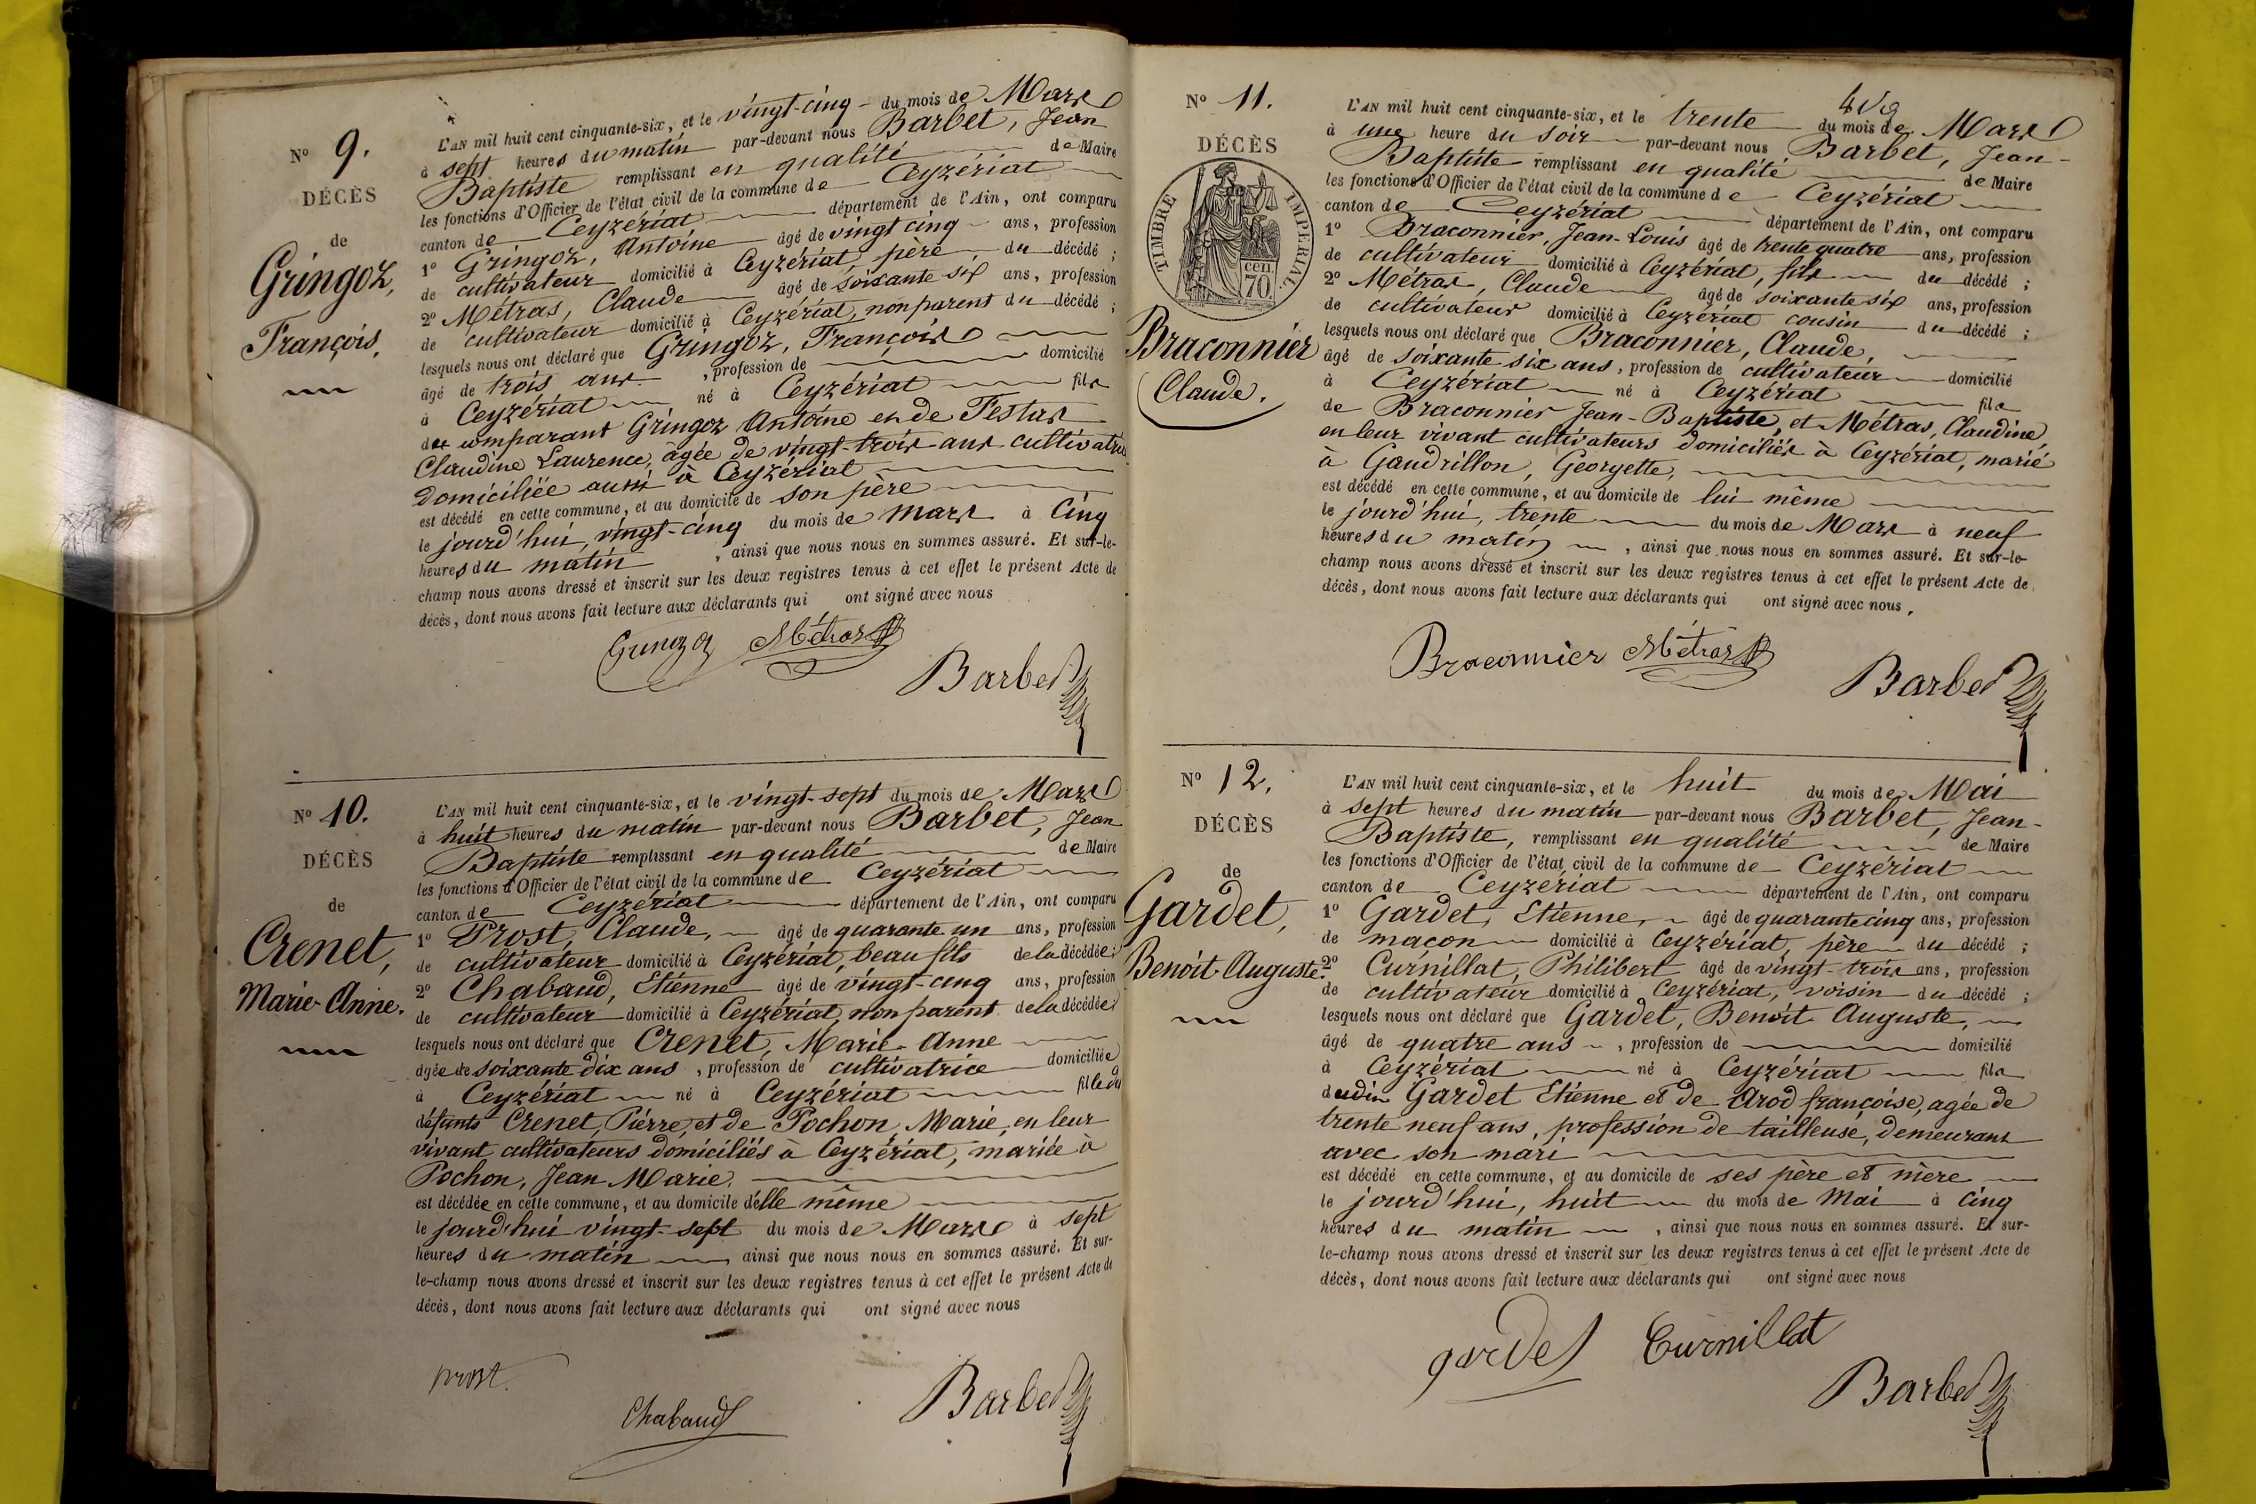 N° 9.
DÉCÈS
de
Gringoz,
François.
L'AN mil huit cent cinquante-six, et le vingt-cinq du mois de Mars
à sept heures du matin par-devant nous Barbet, Jean
Baptiste remplissant en qualité de Maire
les fonctions d'Officier de l'état civil de la commune de Ceyzériat
canton de Ceyzériat département de l'Ain, ont comparu
1° Gringoz, Antoine âgé de vingt cinq ans, profession
de cultivateur domicilié à Ceyzériat, père du décédé ;
2° Métras, Claude âgé de soixante six ans, profession
de cultivateur domicilié à Ceyzériat, non parent du décédé ;
lesquels nous ont déclaré que Gringoz, François
âgé de trois ans , profession de domicilié
à Ceyzériat né à Ceyzériat fils
du comparant Gringoz Antoine et de Festas
Claudine Laurence, âgée de vingt-trois ans cultivatrice
domiciliée aussi à Ceyzériat
est décédé en cette commune, et au domicile de son père
le jourd'hui, vingt-cinq du mois de Mars à Cinq
heures du matin , ainsi que nous nous en sommes assuré. Et sur-le-
champ nous avons dressé et inscrit sur les deux registres tenus à cet effet le présent Acte de
décès, dont nous avons fait lecture aux déclarants qui ont signé avec nous
Gringoz Métras
Barbet
N° 10.
DÉCÈS
de
Crenet,
Marie-Anne.
L'AN mil huit cent cinquante-six, et le vingt-sept du mois de Mars
à huit heures du matin par-devant nous Barbet, Jean
Baptiste remplissant en qualité de Maire
les fonctions d'Officier de l'état civil de la commune de Ceyzériat
canton de Ceyzériat département de l'Ain, ont comparu
1° Prost, Claude, âgé de quarante un ans, profession
de cultivateur domicilié à Ceyzériat, beau fils de la décédée ;
2° Chabaud, Etienne âgé de vingt-cinq ans, profession
de cultivateur domicilié à Ceyzériat, non parent de la décédée ;
lesquels nous ont déclaré que Crenet, Marie-Anne
âgée de soixante dix ans , profession de cultivatrice domiciliée
à Ceyzériat né à Ceyzériat fille de
défunts Crenet, Pierre, et de Pochon, Marie, en leur
vivant cultivateurs domiciliés à Ceyzériat, mariée à
Pochon, Jean Marie.
est décédée en cette commune, et au domicile d'elle même
le jourd'hui vingt-sept du mois de Mars à sept
heures du matin ainsi que nous nous en sommes assuré. Et sur-
le-champ nous avons dressé et inscrit sur les deux registres tenus à cet effet le présent Acte de
décès, dont nous avons fait lecture aux déclarants qui ont signé avec nous
prost.
Chabaud
Barbet
N° 11.
DÉCÈS
TIMBRE IMPÉRIAL.
cen.
70
Braconnier
Claude.
L'AN mil huit cent cinquante-six, et le trente du mois de Mars
à une heure du soir par-devant nous Barbet, Jean-
Baptiste remplissant en qualité de Maire
les fonctions d'Officier de l'état civil de la commune de Ceyzériat
canton de Ceyzériat département de l'Ain, ont comparu
1° Braconnier, Jean-Louis âgé de trente quatre ans, profession
de cultivateur domicilié à Ceyzériat, fils du décédé ;
2° Métras, Claude âgé de soixante six ans, profession
de cultivateur domicilié à Ceyzériat cousin du décédé ;
lesquels nous ont déclaré que Braconnier, Claude,
âgé de soixante six ans, profession de cultivateur domicilié
à Ceyzériat né à Ceyzériat fils
de Braconnier Jean-Baptiste, et Métras, Claudine,
en leur vivant cultivateurs domiciliés à Ceyzériat, marié
à Gaudrillon, Georgette,
est décédé en cette commune, et au domicile de lui même
le jourd'hui, trente du mois de Mars à neuf
heures du matin , ainsi que nous nous en sommes assuré. Et sur-le-
champ nous avons dressé et inscrit sur les deux registres tenus à cet effet le présent Acte de
décès, dont nous avons fait lecture aux déclarants qui ont signé avec nous.
Braconnier Métras
Barbet
N° 12.
DÉCÈS
de
Gardet,
Benoît-Auguste.
L'AN mil huit cent cinquante-six, et le huit du mois de Mai
à sept heures du matin par-devant nous Barbet, Jean-
Baptiste, remplissant en qualité de Maire
les fonctions d'Officier de l'état civil de la commune de Ceyzériat
canton de Ceyzériat département de l'Ain, ont comparu
1° Gardet, Etienne, âgé de quarante cinq ans, profession
de maçon domicilié à Ceyzériat, père du décédé ;
2° Curnillat, Philibert âgé de vingt-trois ans, profession
de cultivateur domicilié à Ceyzériat, voisin du décédé ;
lesquels nous ont déclaré que Gardet, Benoît Auguste,
âgé de quatre ans , profession de domicilié
à Ceyzériat né à Ceyzériat fils
dudin Gardet Etienne et de Arod françoise, agée de
trente neuf ans, profession de tailleuse, demeurant
avec son mari
est décédé en cette commune, et au domicile de ses père et mère
le jourd'hui, huit du mois de Mai à Cinq
heures du matin , ainsi que nous nous en sommes assuré. Et sur-
le-champ nous avons dressé et inscrit sur les deux registres tenus à cet effet le présent Acte de
décès, dont nous avons fait lecture aux déclarants qui ont signé avec nous
gardet Curnillat
Barbet